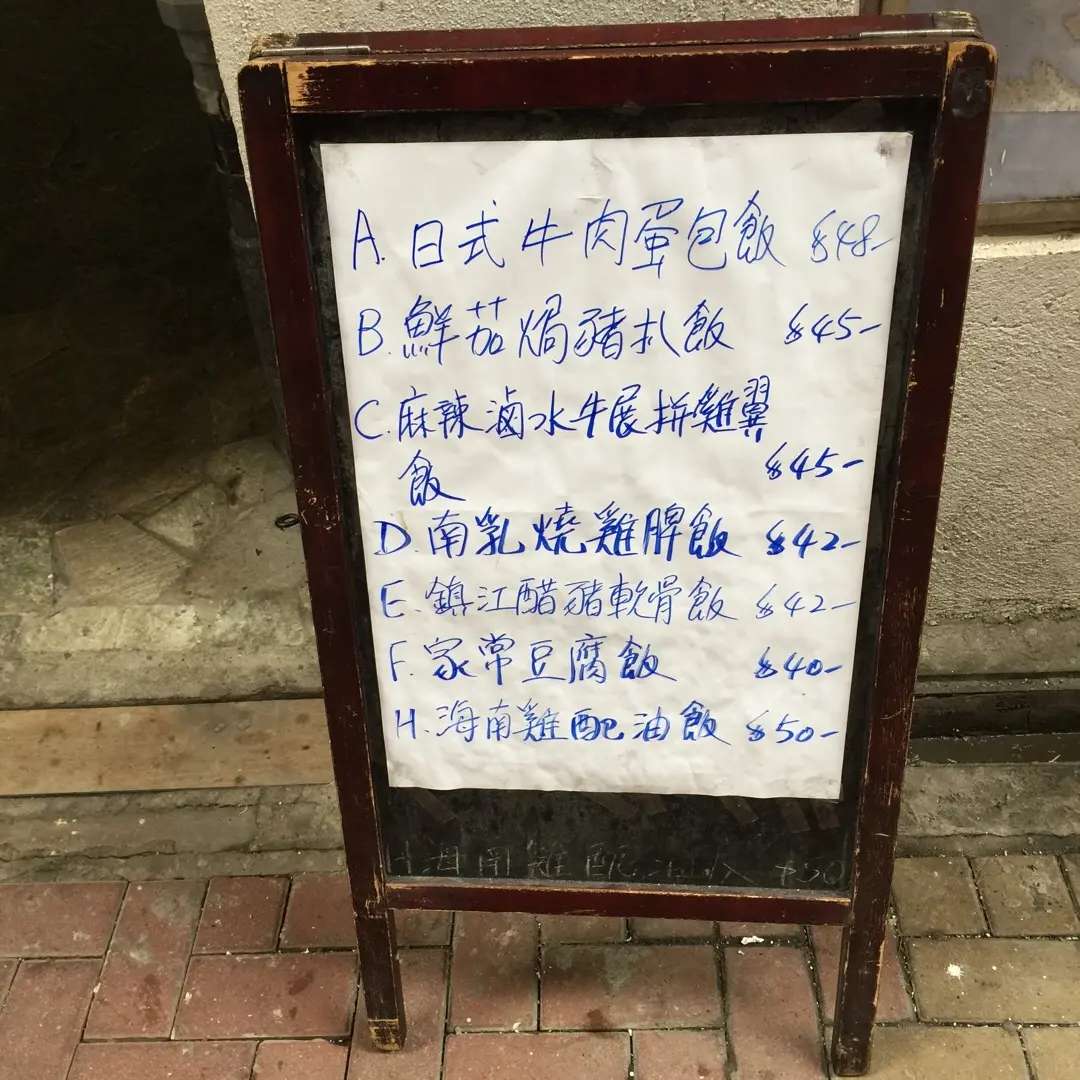 A. 日式牛肉蛋包飯 $48-
B. 鮮茄焗豬扒飯 $45-
C. 麻辣滷水牛展拼雞翼
飯 $45-
D. 南乳燒雞脾飯 $42-
E. 鎮江醋豬軟骨飯 $42-
F. 家常豆腐飯 $40-
H. 海南雞配油飯 $50-
海南雞配油 $50